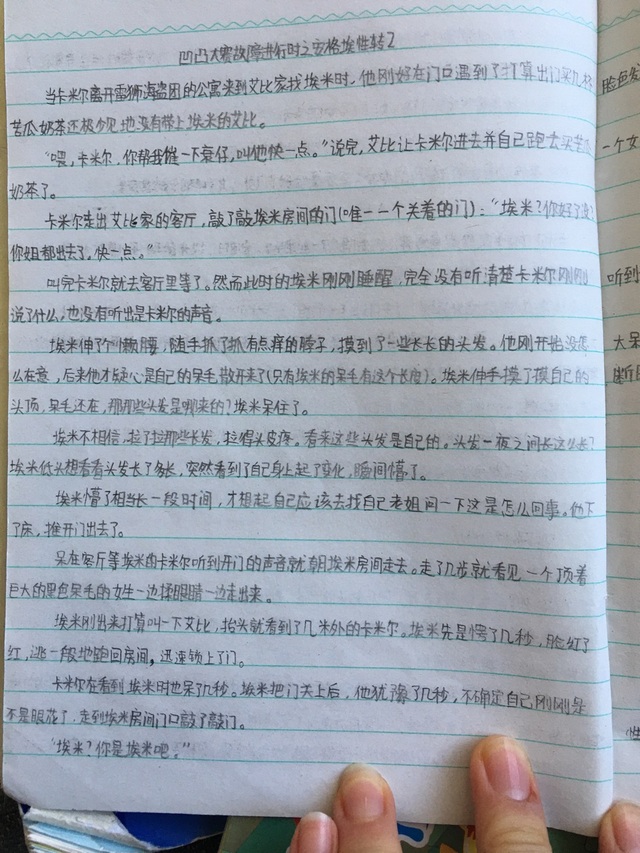 凹凸大赛故障进行时之安格埃性转2
当卡米尔离开雷狮海盗团的公寓来到艾比家找埃米时，他刚好在门口遇到了打算出门买几杯
苦瓜奶茶还极少见地没有带上埃米的艾比。
“喂，卡米尔，你帮我催一下衰仔，叫他快一点。”说完，艾比让卡米尔进去并自己跑去买苦瓜
奶茶了。
卡米尔走出艾比家的客厅，敲了敲埃米房间的门(唯一一个关着的门)：“埃米？你好了没？
你姐都出去了，快一点。”
叫完卡米尔就去客厅里等了。然而此时的埃米刚刚睡醒，完全没有听清楚卡米尔刚刚
说了什么，也没有听出是卡米尔的声音。
埃米伸了个懒腰，随手抓了抓有点痒的脖子，摸到了一些长长的头发。他刚开始没怎
么在意，后来他才疑心是自己的呆毛散开来了(只有埃米的呆毛有这个长度)。埃米伸手摸了摸自己的
头顶，呆毛还在，那那些头发是哪来的？埃米呆住了。
埃米不相信，拉了拉那些长发，拉得头皮疼。看来这些头发是自己的。头发一夜之间长这么长？
埃米低头想看看头发长了多长，突然看到了自己身上起了变化，瞬间懵了。
埃米懵了相当长一段时间，才想起自己应该去找自己老姐问一下这是怎么回事。他下
了床，推开门出去了。
呆在客厅等埃米的卡米尔听到开门的声音就朝埃米房间走去。走了几步就看见一个顶着
巨大的黑色呆毛的女生一边揉眼睛一边走出来。
埃米刚出来打算叫一下艾比，抬头就看到了几米外的卡米尔。埃米先是愣了几秒，脸红了
红，逃一段地跑回房间，迅速锁上了门。
卡米尔在看到埃米时也呆了几秒。埃米把门关上后，他犹豫了几秒，不确定自己刚刚是
不是眼花了，走到埃米房间门口敲了敲门。
“埃米？你是埃米吧？”
脸色发
一个女
听到
大呆